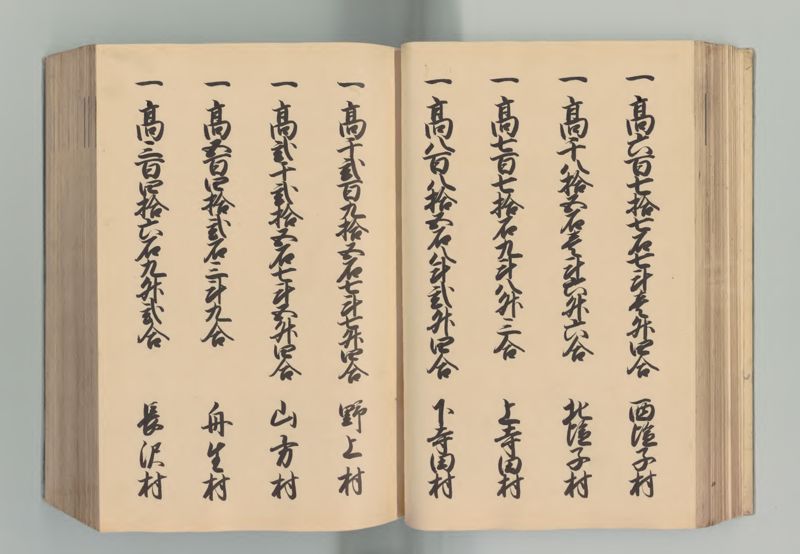 一 高六百七拾七石七斗壱升四合 西塩子村
一 高千八拾五石壱斗六升六合 北塩子村
一 高七百七拾石九斗八升三合 上寺田村
一 高八百八拾五石八斗弐升四合 下寺田村
一 高千弐百九拾五石七斗七升四合 野上村
一 高弐千弐拾五石七斗五升四合 山方村
一 高五百四拾弐石三斗九合 舟生村
一 高三百四拾六石九升弐合 長沢村